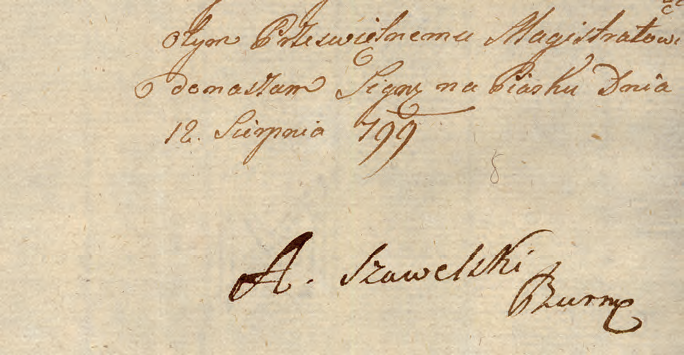 otym Przeświętnemu Magistratowi
donaszam Sign: na Piasku Dnia
12. Sierpnia 799
A. Szawelski
Burm